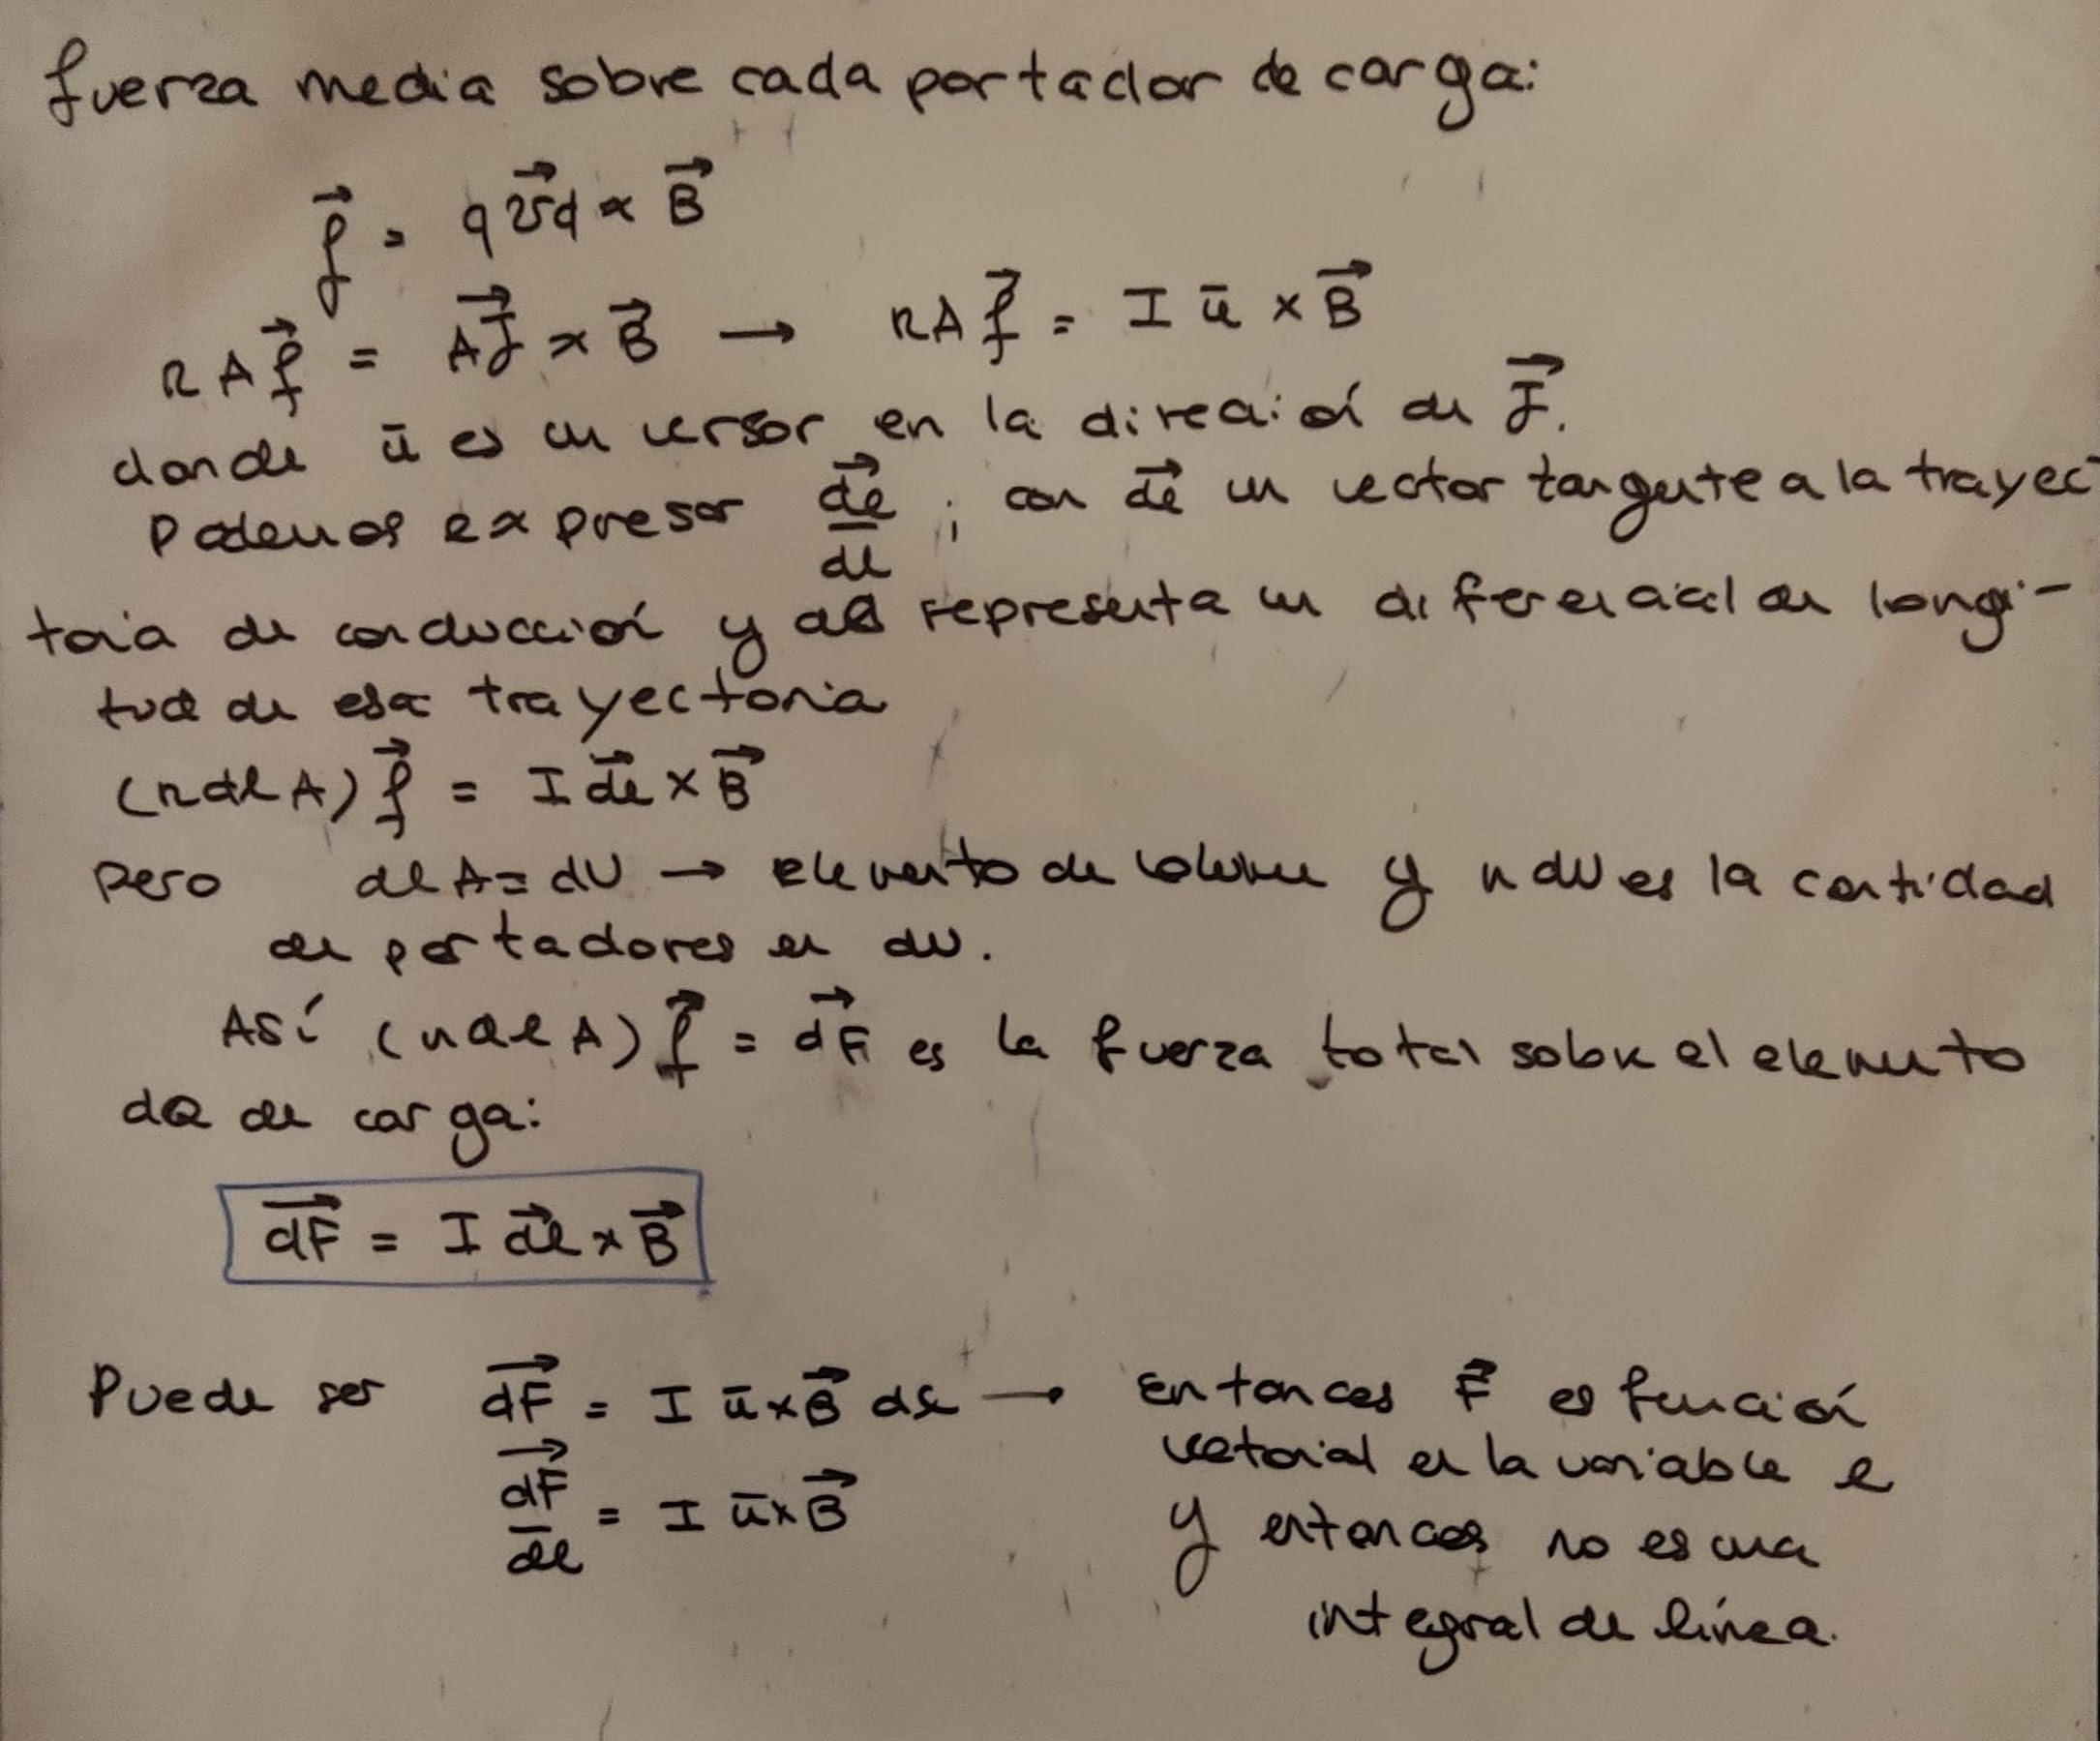 fuerza media sobre cada portador de carga:
f⃗ = q v⃗d × B⃗
nAf⃗ = AJ⃗ × B⃗ → nAf⃗ = I ū × B⃗
donde ū es un versor en la dirección de J⃗.
Podemos expresar dl⃗/dl ; con dl⃗ un vector tangente a la trayec-
toria de conducción y dl representa un diferencial de longi-
tud de esa trayectoria
(n dl A) f⃗ = I dl⃗ × B⃗
pero dl A = dV → elemento de volumen y n dV es la cantidad
de portadores en dV.
Así (n dl A) f⃗ = dF⃗ es la fuerza total sobre el elemento
dQ de carga:
dF⃗ = I dl⃗ × B⃗
Puede ser dF⃗ = I ū × B⃗ dl → Entonces F⃗ es función
vectorial en la variable l
dF⃗/dl = I ū × B⃗
y entonces no es una
integral de línea.